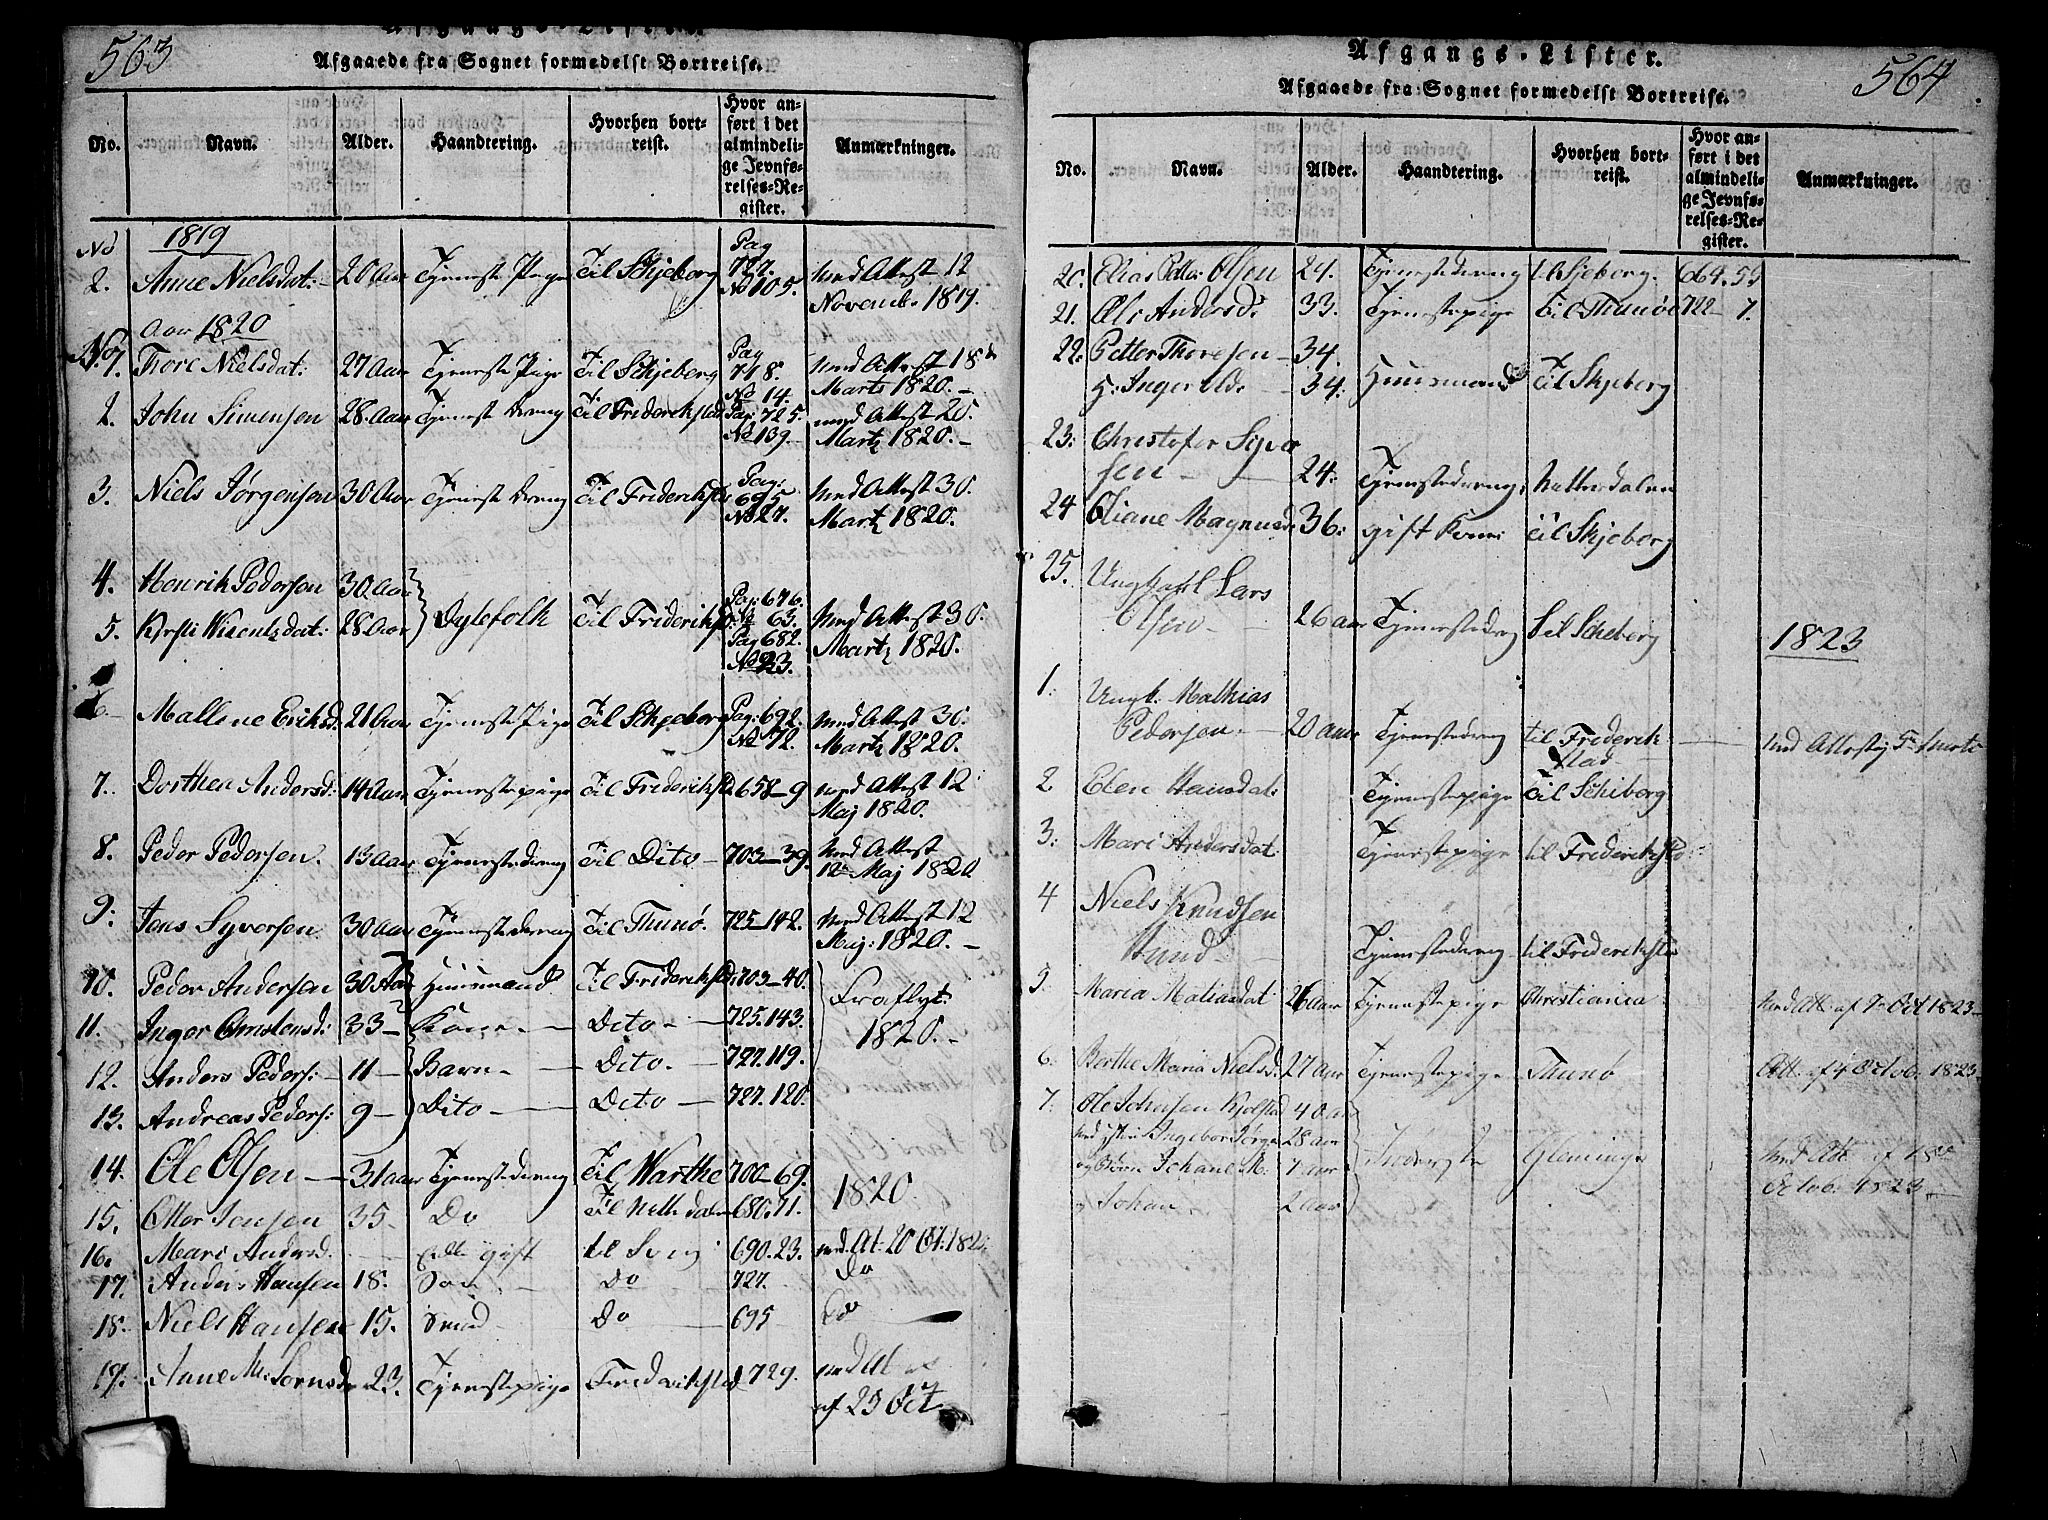 563
Afgangs-Lister.
Afgaaede fra Sognet formedelst Bortreise.
No. Navn. Alder. Haandtering. Hvorhen bortreist. Hvor anført i det almindelige Jevnførelses-Register. Anmærkninger.
No 1819
2. Anne Nielsdat: 20 Aar Tjeneste Pige Til Skjeberg Pag 727. No 105. med Attest 12 Novemb. 1819.
Aar 1820
No 1. Tore Nielsdat: 27 Aar Tjeneste Pige Til Schjeberg Pag 718. No 14. med Attest 18 Marts 1820.
2. John Simensen 28 Aar Tjeneste Dreng Til Friderikstad Pag: 725. No 139 med Attest 20. Marts 1820.
3. Niels Jørgensen 30 Aar Tjeneste Dreng Til Frideriks Pag: 695 No 27. Med Attest 30. Marts 1820.
4. Henrik Pedersen 30 Aar
5. Kirsti dat: 28 Aar Til Frideriks Pag: 676. No 63. Pag 682. No 23. Med Attest 30. Marts 1820.
6. Mallene Eriksd: 21 Aar Tjeneste Pige Til Schjeberg Pag: 692. No 72. Med Attest 30. Marts 1820.
7. Dorthea Andersd: 14 Aar Tjenestepige Til Frideriksst 658-9 med Attest 12 Maj 1820.
8. Peder Pedersen. 13 Aar Tjenestedreng Til Dito 703-39. Med Attest 12 Maj 1820
9: Jens Syversen 30 Aar Tjenestedreng Til Thunø. 725-142. Med Attest 12 Maj: 1820.
10. Peder Andersen 30 Aar Huusmand Til Friderikstd: 703-40. Fraflyt: 1820.
11. Inger 33 Kone Dito 725.143.
12. Anders Peders: 11 Barn Dito. 727.119.
13. Andreas Peders: 9 Dito Dito 727.120.
14. Ole Olsen 31 aar Tjenestedreng Til Warthe 700-69. 1820.
15. Otter Jensen 35 Do Til 680.71.
16. Mari Andersd. gift til 690.23. med At: 20 Oct: 182
17. Anders Hansen 18. Do 727. Do
18. Niels Hansen 15. Do 695 Do
19. Anne M: 23. Tjenestepige Frederikstad 729. med At af 23 Oct
564
Afgangs-Lister.
Afgaaede fra Sognet formedelst Bortreise.
No. Navn. Alder. Haandtering. Hvorhen bortreist. Hvor anført i det almindelige Jevnførelses-Register. Anmærkninger.
20. Elias Petter Olsen 24. Tjenestedreng t. Skjeberg. 664.59
21. Andersd. 33. Tjenestepige til Thunøe 722 7.
22. Petter Thoresen 34. Huusmand Til Skjeberg
H: Inger 34.
23: Christofer Syver
sen 24: Tjenestedreng
24 Oliane Magnusd. 36: gift Kone til Skjeberg
25. Ungkarl Lars
Olsen 26 aar Tjenestedreng til Scheberg
1823
1. Ungk. Mathias
Pedersen. 20 aar Tjenestedreng til Frederikstad med Attest
2 Elen Hansdat: Tjenestepige Til Schiberg
3: Mari Andersdat: Tjenestepige til Frederiksst
4 Niels Knudsen
Tjenestedreng til Frederikst
5. Maria Matiasdat: 26 aar Tjenestepige Christiania med Att: af Oct 1823
6. Berthe Maria Nielsd. 27 aar Tjenestepige Thunø Att. af 4 Octob: 1823
7. Ole Johnsen Kjølstad 40 aar
Ingebor Jørgens 28 aar Gleminge med Att: af 18
og Børn Johane M: 7 aar Octob: 1823
og Johan 2 aar